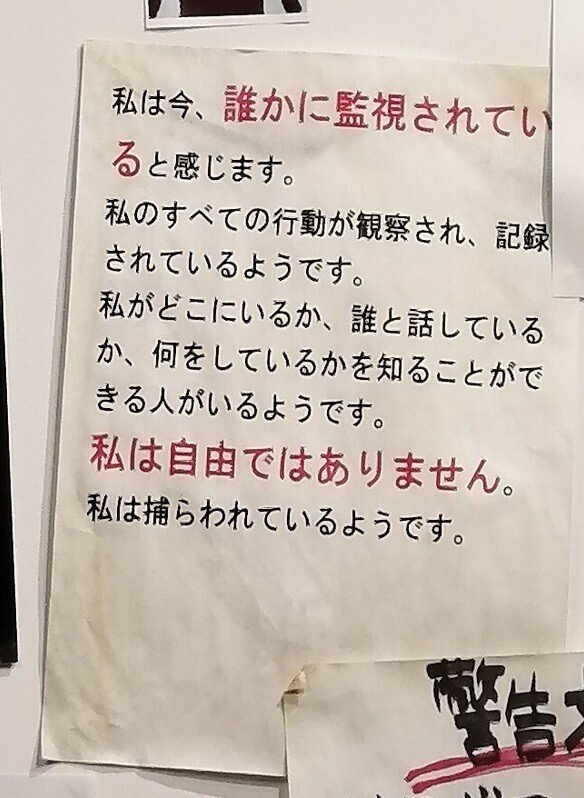 私は今、誰かに監視されてい
ると感じます。
私のすべての行動が観察され、記録
されているようです。
私がどこにいるか、誰と話している
か、何をしているかを知ることがで
きる人がいるようです。
私は自由ではありません。
私は捕らわれているようです。
警告